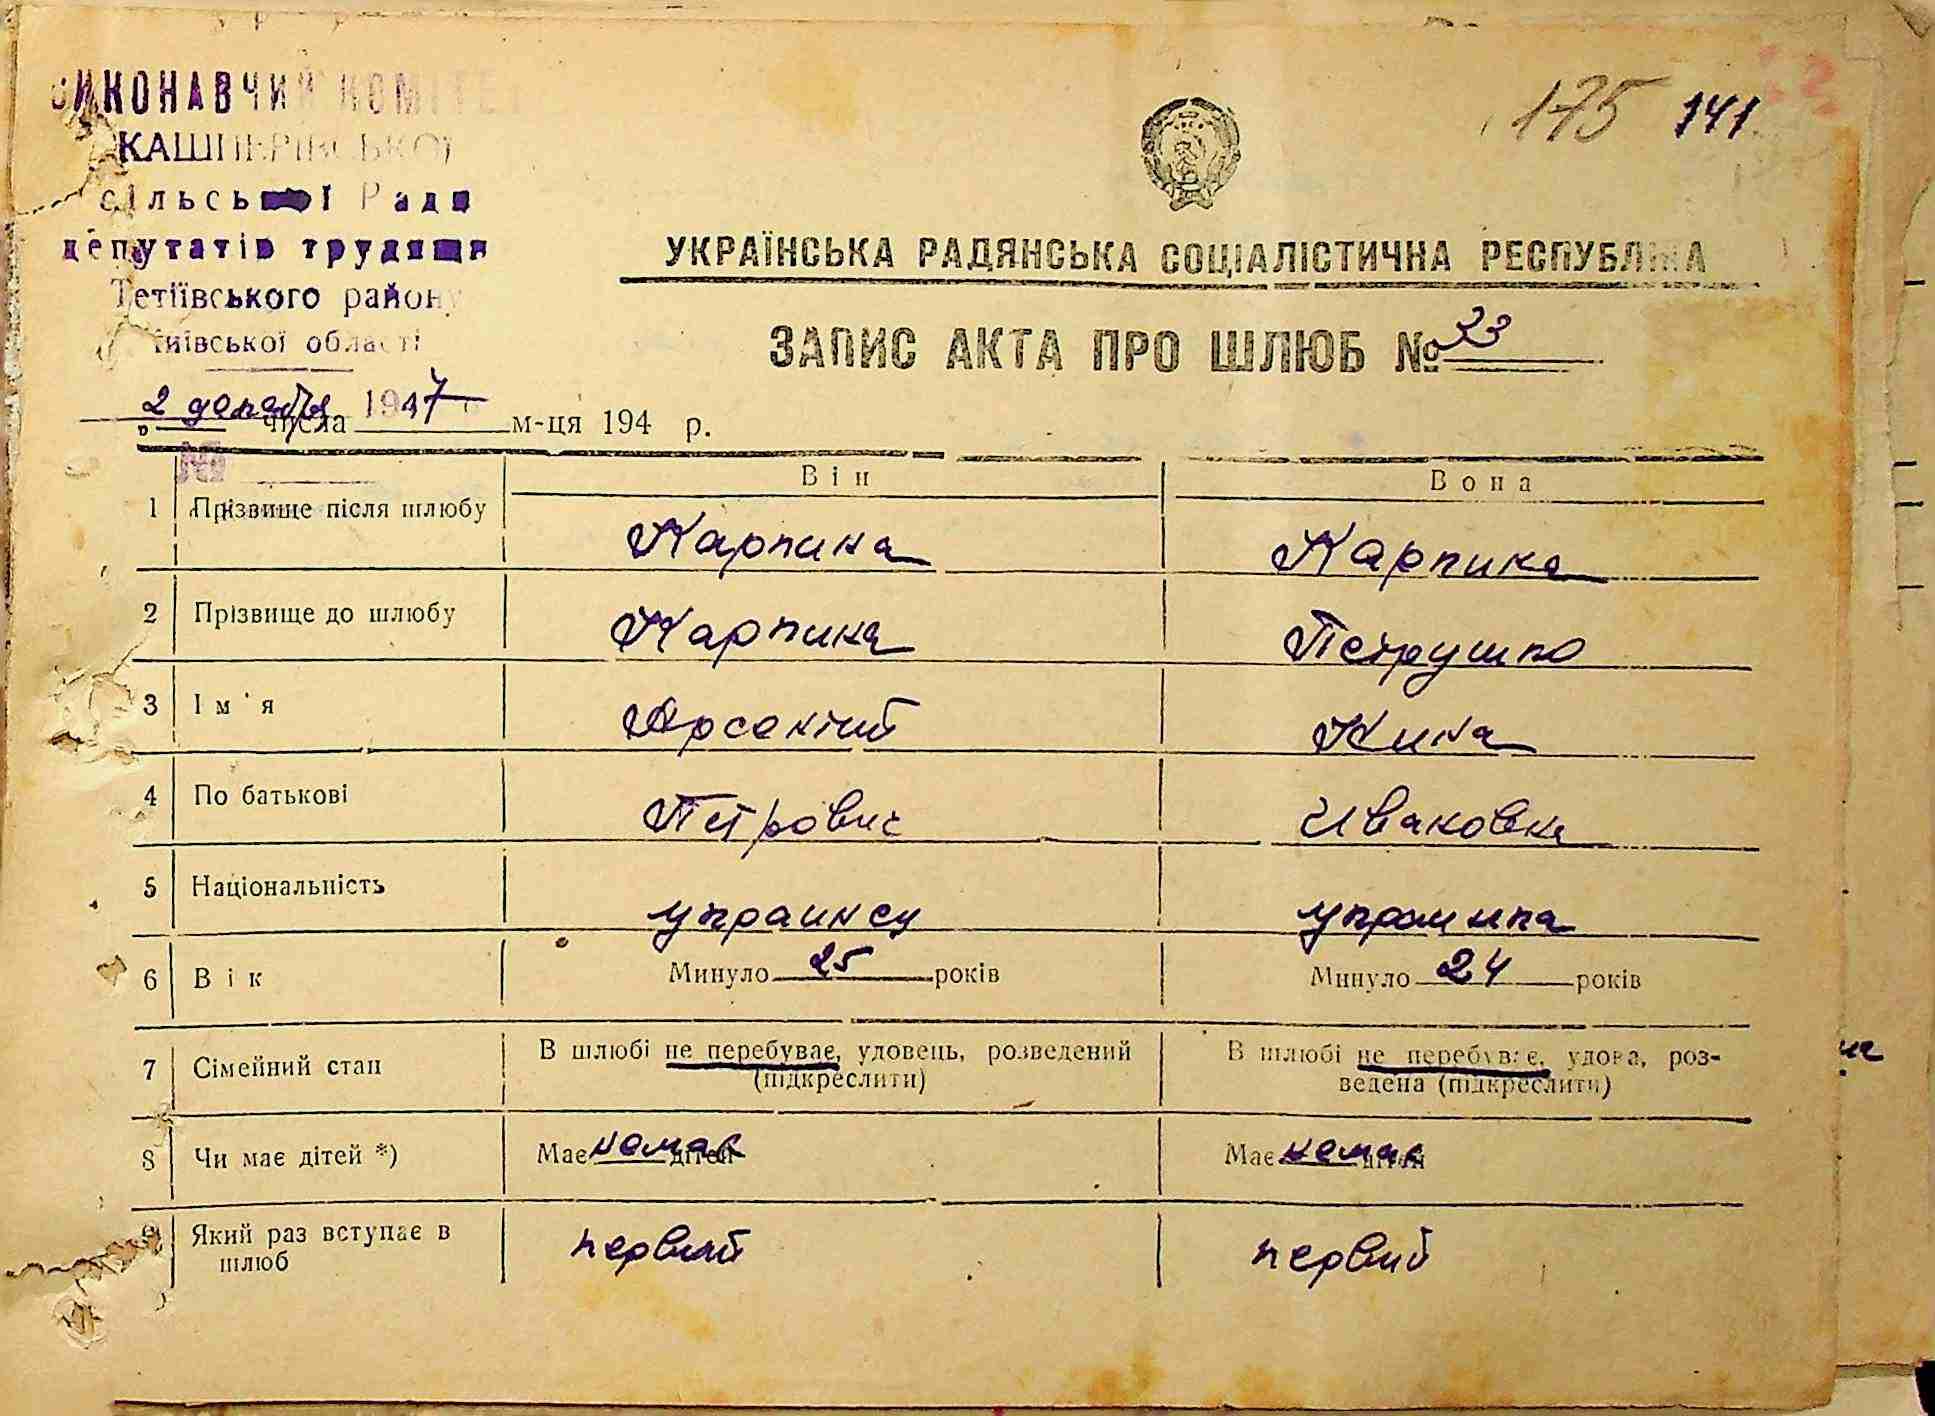 ВИКОНАВЧИЙ КОМІТЕТ
КАШПЕРІВСЬКОЇ
сільської Ради
депутатів трудящих
Тетіївського району
Київської області
2 декабря 1947
175 141
УКРАЇНСЬКА РАДЯНСЬКА СОЦІАЛІСТИЧНА РЕСПУБЛІКА
ЗАПИС АКТА ПРО ШЛЮБ № 33
числа м-ця 194 р.
Він Вона
1 Прізвище після шлюбу Карпина Карпина
2 Прізвище до шлюбу Карпина Петрушко
3 Ім'я Арсентий Нина
4 По батькові Петрович Ивановна
5 Національність украинец украинка
6 Вік Минуло 25 років Минуло 24 років
7 Сімейний стан В шлюбі не перебуває, удовець, розведений (підкреслити) В шлюбі не перебуває, удова, роз-
ведена (підкреслити)
8 Чи має дітей *) Має немає дітей Має немає дітей
9 Який раз вступає в шлюб первый первий